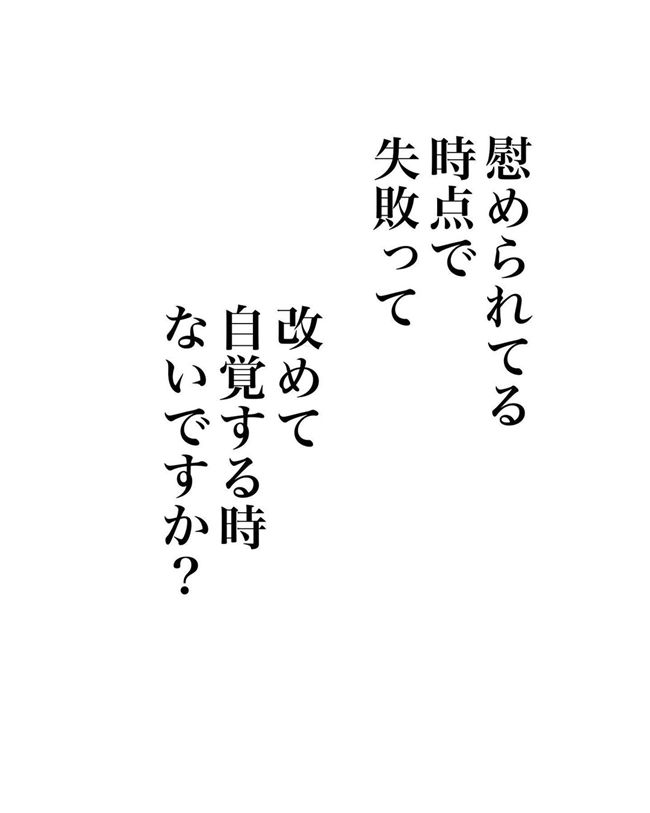 慰められてる
時点で
失敗って
改めて
自覚する時
ないですか？